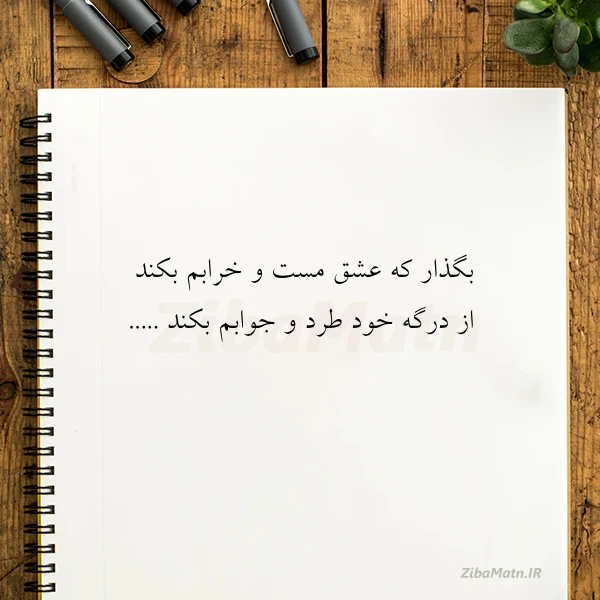 بگذار که عشق مست و خرابم بکند
از درگه خود طرد و جوابم بکند .....
ZibaMatn
ZibaMatn.IR